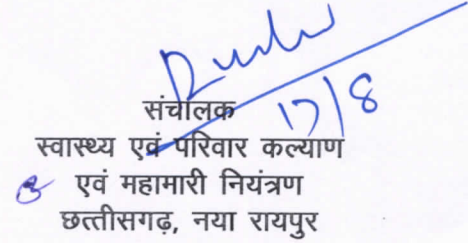 17/8
संचालक
स्वास्थ्य एवं परिवार कल्याण
एवं महामारी नियंत्रण
छत्तीसगढ़, नया रायपुर